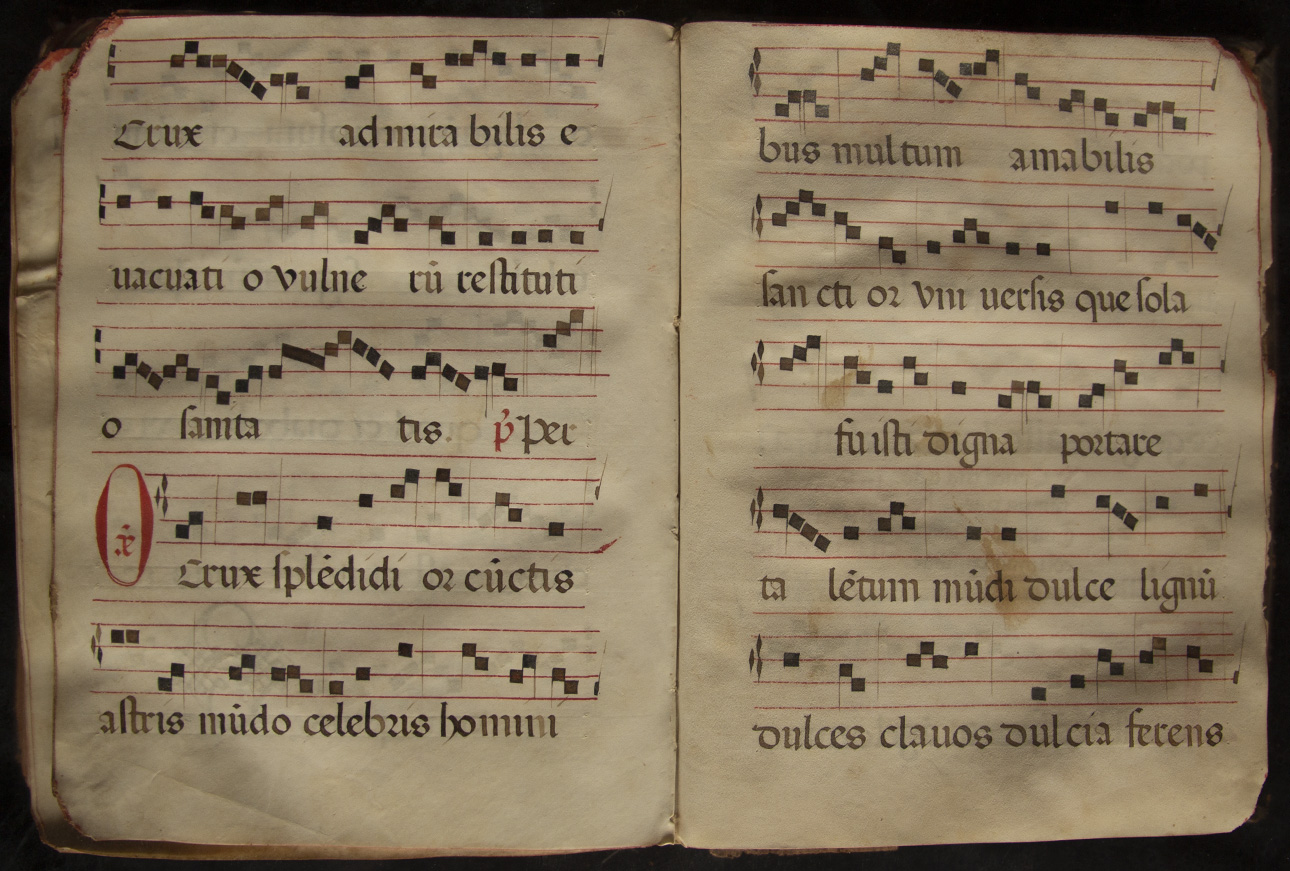 Crux admira bilis e
uacuati o vulne rū restituti
o sanita tis. p̄ Per
O xē
Crux splēdidi or cūctis
astris mūdo celebris homini
bus multum amabilis
san cti or vni uersis que sola
fu isti digna portare
ta lētum mūdi dulce lignū
dulces clauos dulcia ferens